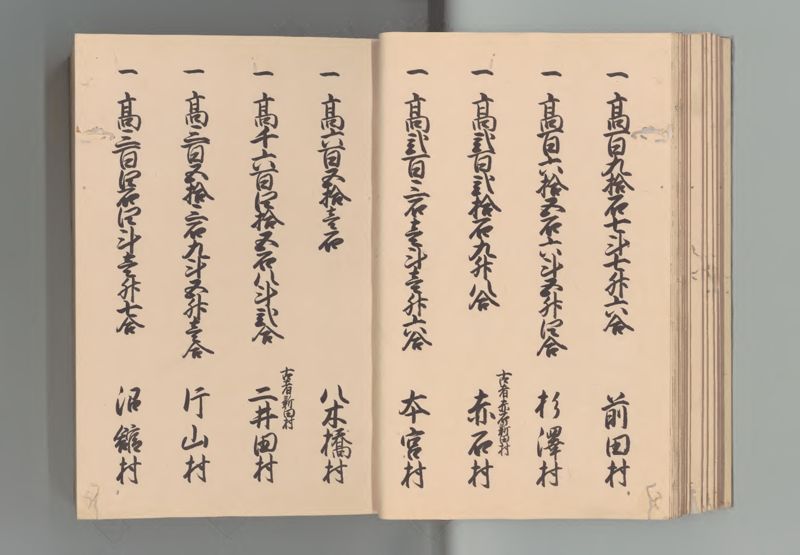 一 高百九拾石七斗七升六合 前田村
一 高百六拾五石六斗五升四合 杉澤村
一 高弐百弐拾石九升八合 古者赤石新田村 赤石村
一 高弐百三石壱斗壱升六合 本宮村
一 高六百五拾壱石 八木橋村
一 高千六百四拾五石八斗弐合 古者新田村 二井田村
一 高三百五拾三石九斗五升壱合 片山村
一 高三百四石四斗壱升七合 沼舘村